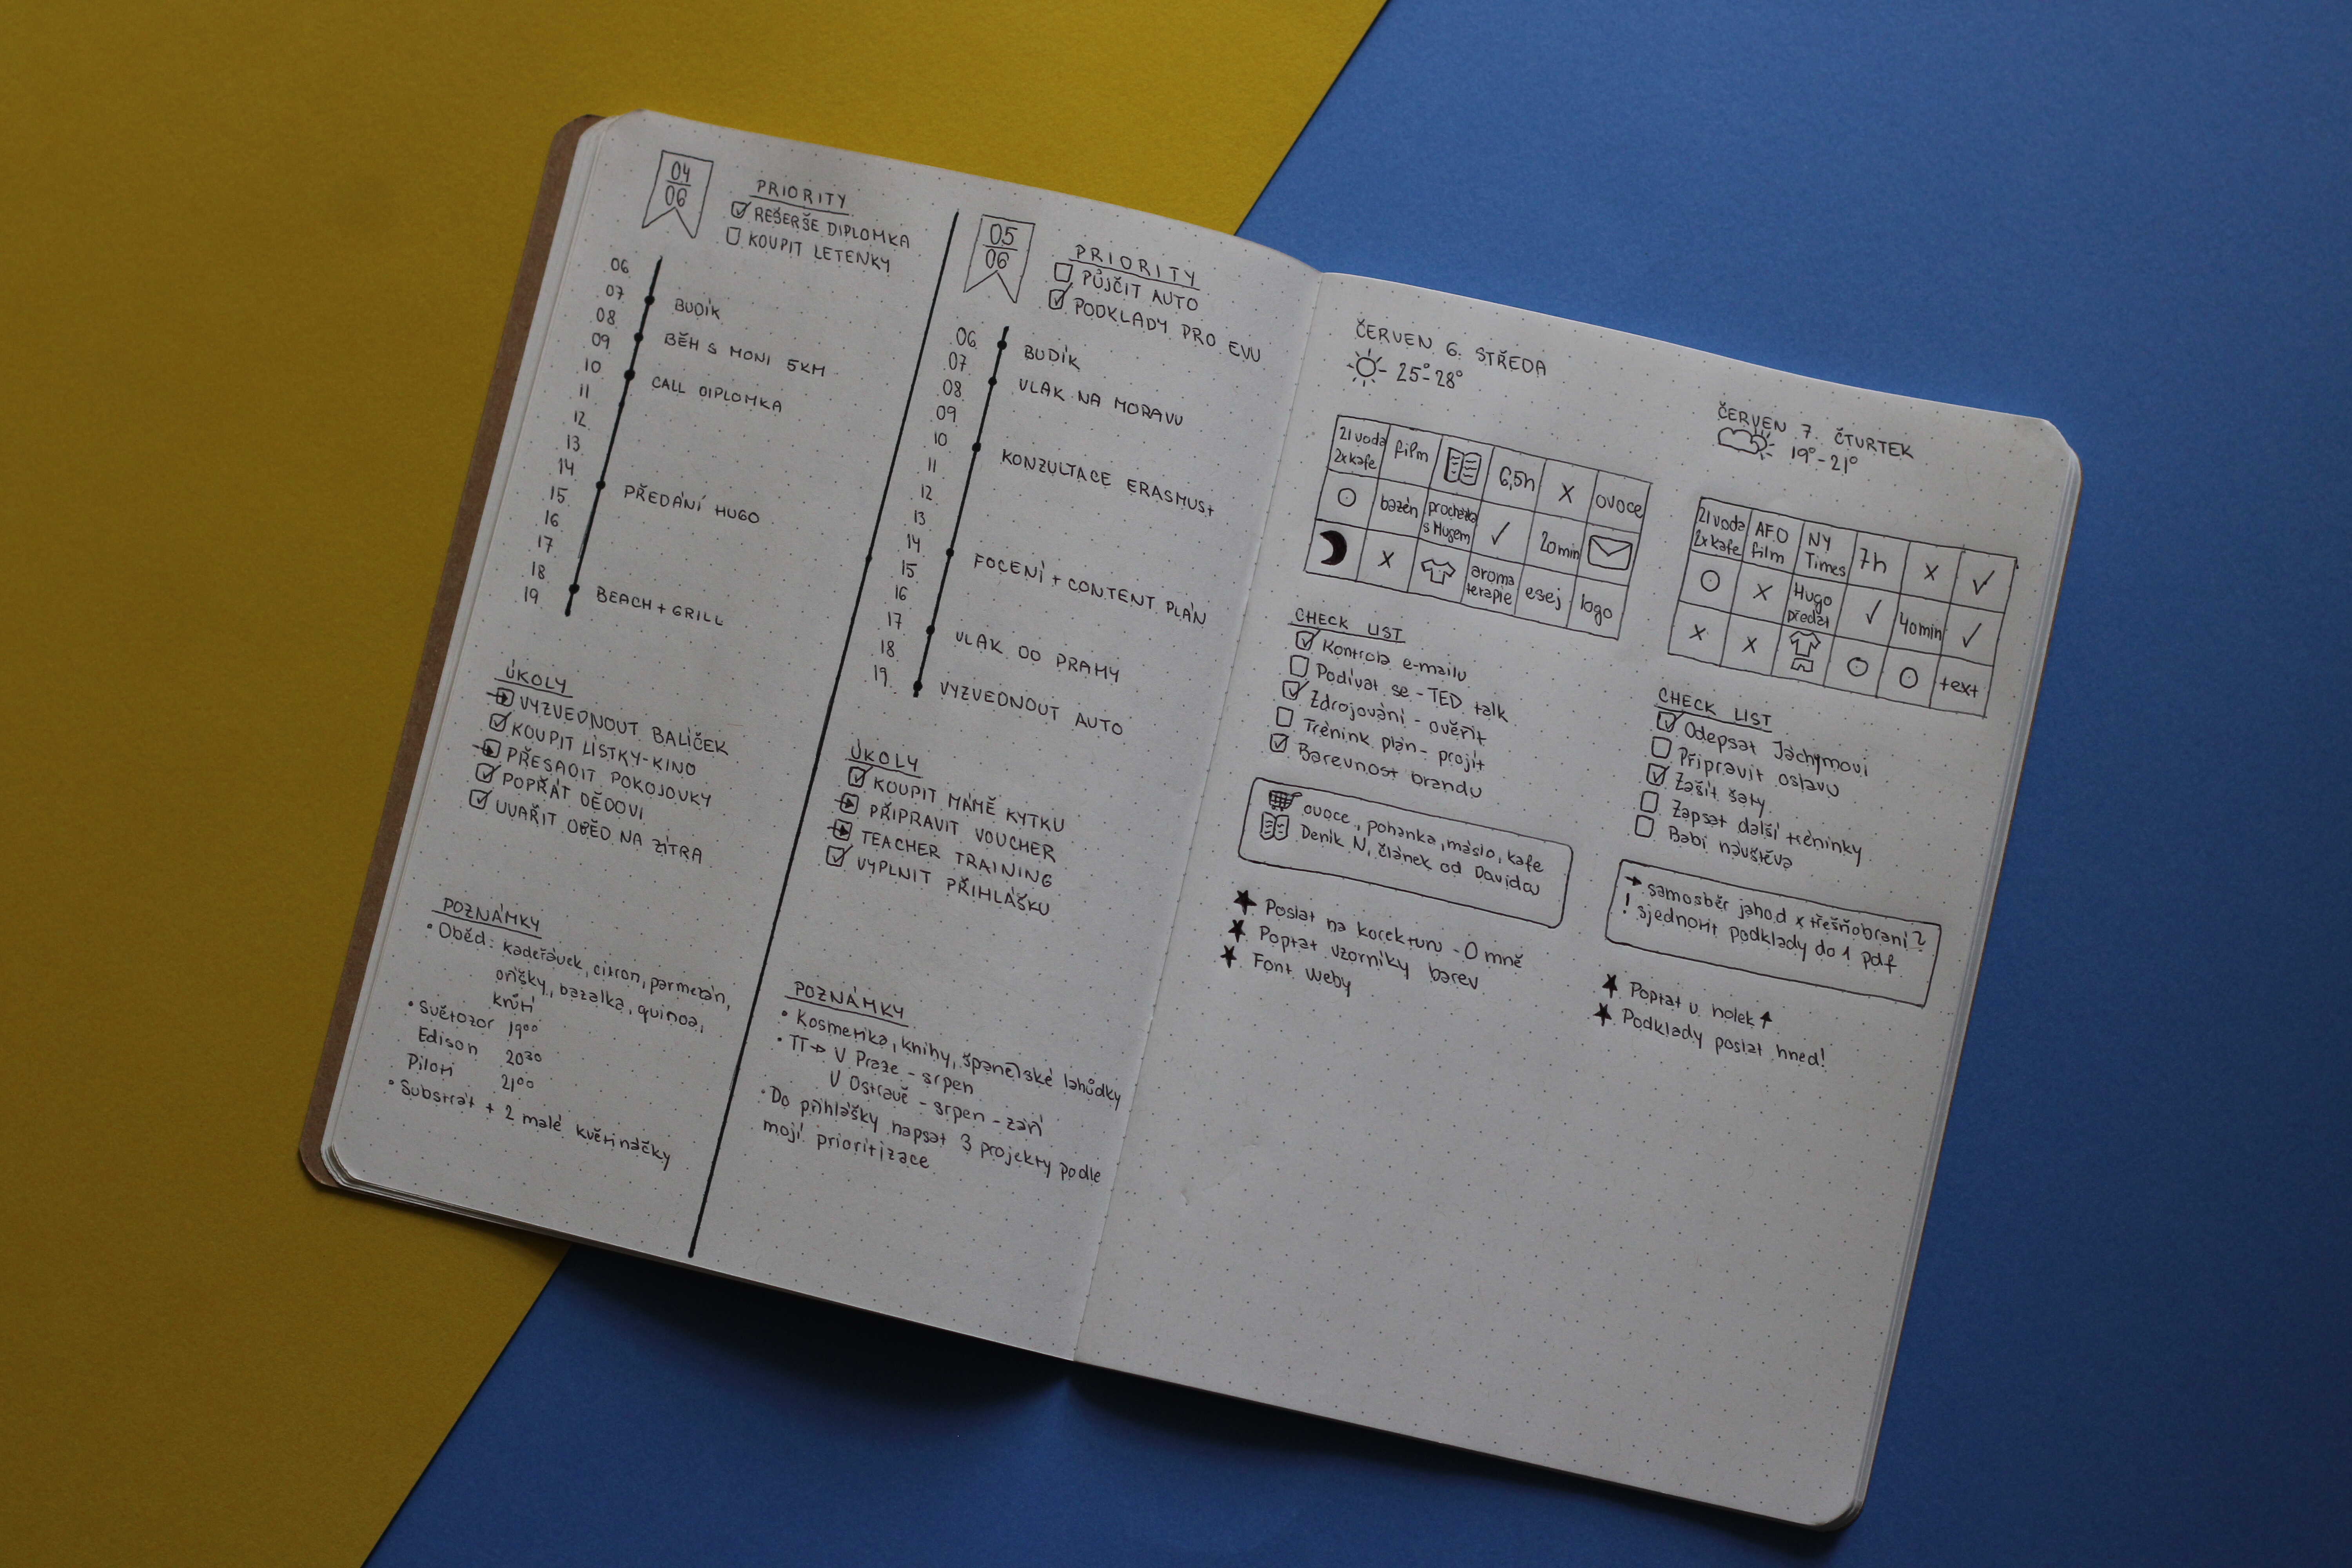 04
06
PRIORITY
REŠERŠE DIPLOMKA
KOUPIT LETENKY
06
07
BUDÍK
08
09
BĚH S MONI 5KM
10
CALL DIPLOMKA
11
12
13
14
15
PŘEDÁNÍ HUGO
16
17
18
19
BEACH + GRILL
ÚKOLY
VYZVEDNOUT BALÍČEK
KOUPIT LÍSTKY-KINO
PŘESADIT POKOJOVKY
POPŘÁT DĚDOVI
UVAŘIT OBĚD NA ZÍTRA
POZNÁMKY
• Oběd: kadeřávek, citron, parmezán,
oříšky, bazalka, quinoa,
krůtí
• Světozor 19⁰⁰
Edison 20³⁰
Piloti 21⁰⁰
• Substrát + 2 malé květináčky
05
06
PRIORITY
PŮJČIT AUTO
PODKLADY PRO EVU
06
BUDÍK
07
08
VLAK NA MORAVU
09
10
KONZULTACE ERASMUS+
11
12
13
14
15
FOCENÍ + CONTENT PLÁN
16
17
VLAK DO PRAHY
18
19
VYZVEDNOUT AUTO
ÚKOLY
KOUPIT MÁMĚ KYTKU
PŘIPRAVIT VOUCHER
TEACHER TRAINING
VYPLNIT PŘIHLÁŠKU
POZNÁMKY
• Kosmetika, knihy, španělské lahůdky
• TT → V Praze - srpen
V Ostravě - srpen - září
• Do přihlášky napsat 3 projekty podle
mojí prioritizace
ČERVEN 6. STŘEDA
25°-28°
2l voda 2x kafe film 6,5h x ovoce
bazén procházka s Hugem ✓ 20min
x aroma terapie esej logo
CHECK LIST
Kontrola e-mailu
Podívat se - TED talk
Zdrojování - ověřit
Trénink plán - projít
Barevnost brandu
ovoce, pohanka, máslo, kafe
Deník N, článek od Davida
★ Poslat na korekturu - O mně
★ Poptat vzorníky barev
★ Font weby
ČERVEN 7. ČTVRTEK
19°-21°
2l voda 2x kafe AFO film NY Times 7h x ✓
x Hugo předání ✓ 40min ✓
x x text
CHECK LIST
Odepsat Jáchymovi
Připravit oslavu
Zašít šaty
Zapsat další tréninky
Babi návštěva
→ samosběr jahod x třešňobraní?
! sjednotit podklady do 1 pdf
★ Poptat u holek ↑
★ Podklady poslat hned!